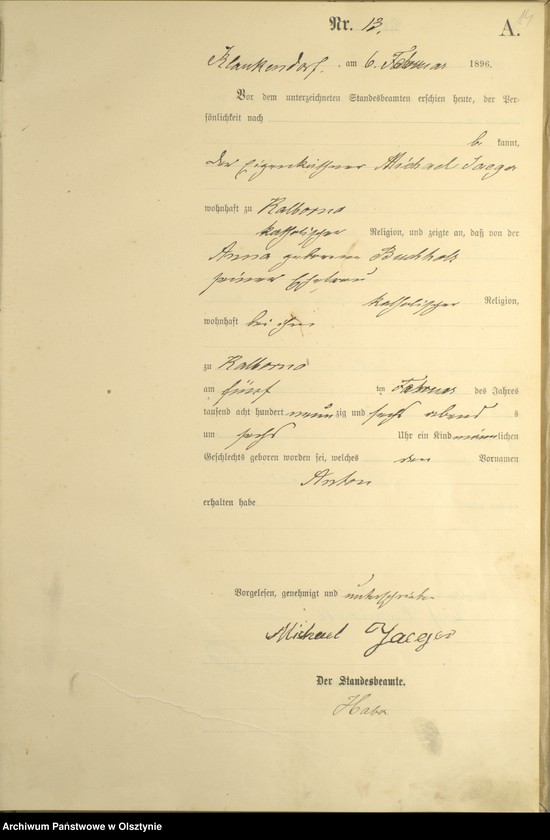 Nr. 13.
A.
Klaukendorf, am 6. Februar 1896.
Vor dem unterzeichneten Standesbeamten erschien heute, der Per-
sönlichkeit nach
be kannt,
der Eigenkäthner Michael Jaeger
wohnhaft zu Kalborno
katholischer Religion, und zeigte an, daß von der
Anna geborenen Buchholz
seiner Ehefrau
katholischer Religion,
wohnhaft bei ihm
zu Kalborno
am fünf ten Februar des Jahres
tausend acht hundert neun zig und sechs abend s
um sechs Uhr ein Kind männlichen
Geschlechts geboren worden sei, welches den Vornamen
Anton
erhalten habe
Vorgelesen, genehmigt und unterschrieben
Michael Jaeger
Der Standesbeamte.
Archiwum Państwowe w Olsztynie